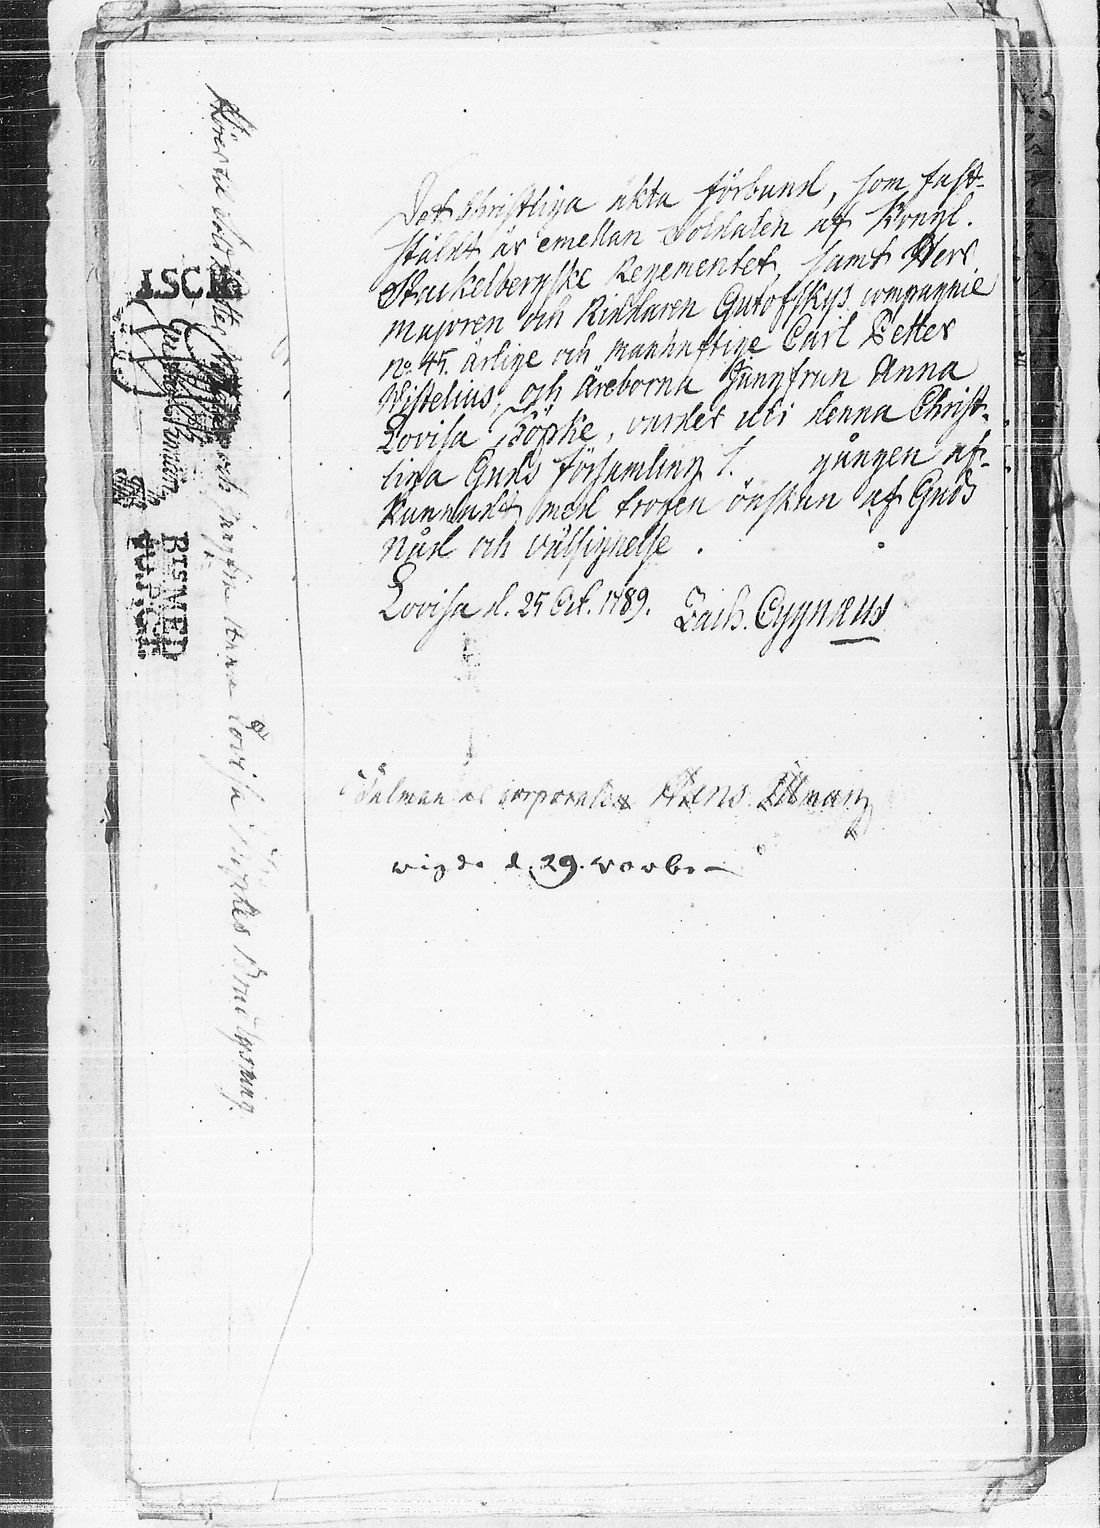 Det Christliga äkta förbund, som fast-
stäldt är emellan Soldaten af Kongl.
Stackelbergske Regementet, samt Herr
majoren och Riddaren Gutofskys compagnie
no. 45. ärlige och manhaftige Carl Petter
Wistelius, och äreborna Jungfrun Anna
Lovisa Köpke, varder uti denna Christ-
liga Guds församling 1. gången af-
kunnadt med trogen önskan af Guds
nåd och välsignelse.
Lovisa d. 25 Oct. 1789. Zach. Cygnæus
corporalen Hens
wigde d. 29. novbr
och Anna Lovisa Köpkes Brud lysning